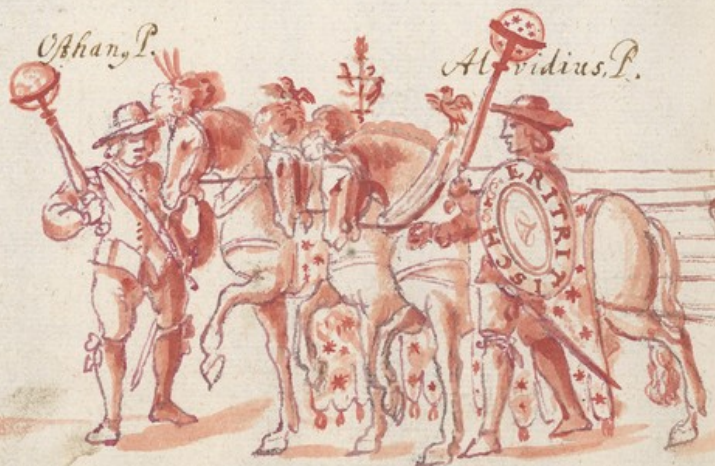 Osthanꝯ P.
Alvidius. P.
ERITRITISCH